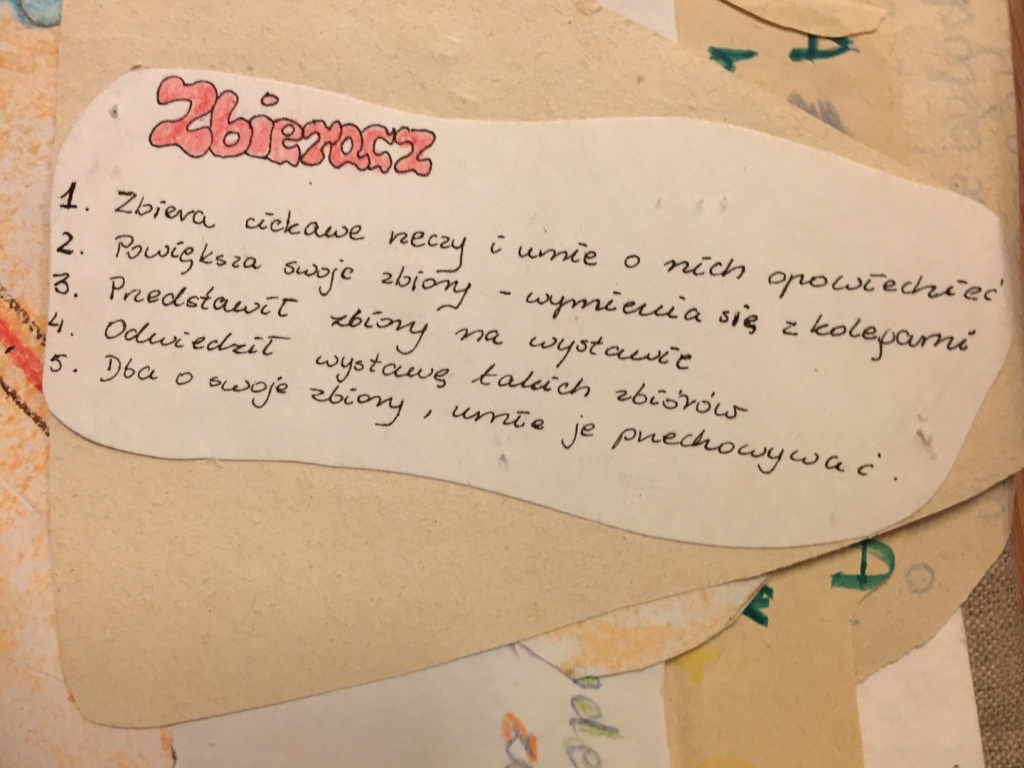 Zbieracz
1. Zbiera ciekawe rzeczy i umie o nich opowiedzieć
2. Powiększa swoje zbiory - wymienia się z kolegami
3. Przedstawił zbiory na wystawie
4. Odwiedził wystawę takich zbiorów
5. Dba o swoje zbiory, umie je przechowywać.